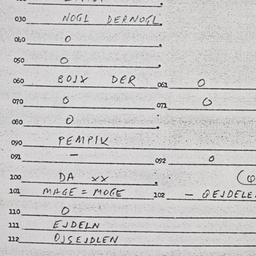 030 NOGL DERNOGL.
040 0
050 0
060 BOJX DER 061 0
070 0 071 0
080 0
090 PEMPIK
091 - 092 0
100 DA xx
101 MAGE = MOGE 102 - QEJDELE
110 0
111 EJDELN
112 OJSEJDLEN